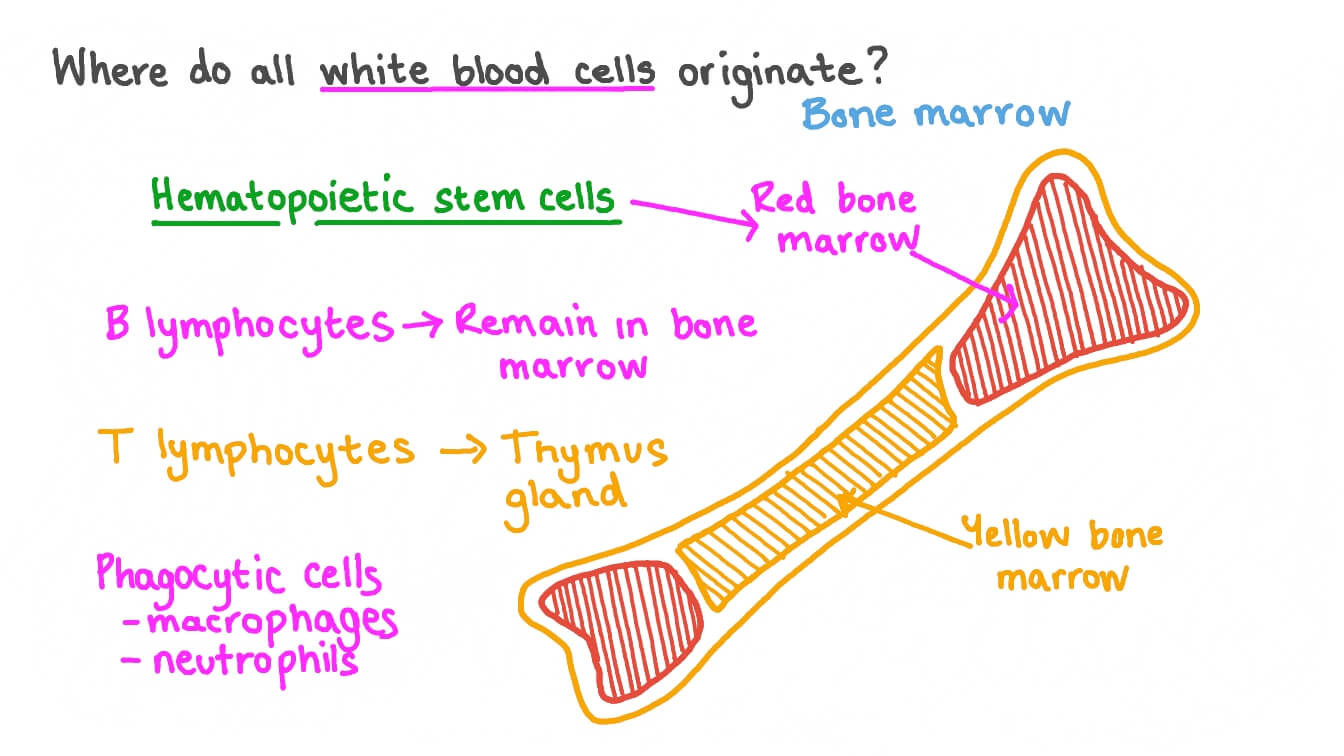 Where do all white blood cells originate?
Bone marrow
Hematopoietic stem cells
Red bone
marrow
B lymphocytes → Remain in bone
marrow
T lymphocytes → Thymus
gland
Phagocytic cells
- macrophages
- neutrophils
Yellow bone
marrow